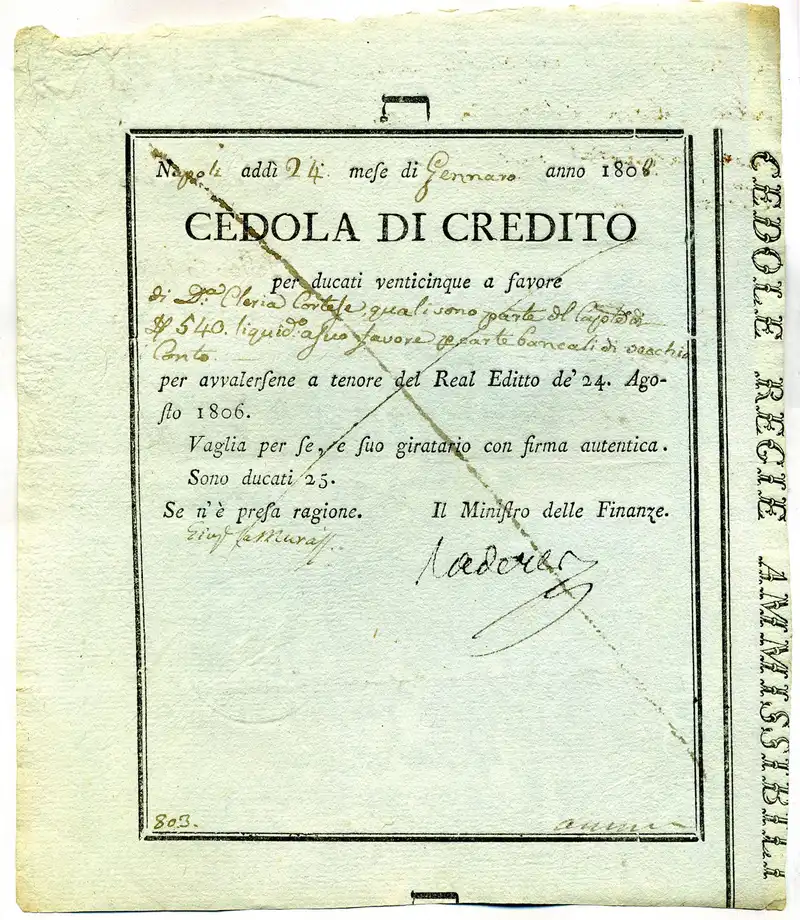 Napoli addì 24 meſe di Gennaro anno 1808
CEDOLA DI CREDITO
per ducati venticinque a favore
di D.ª Cleria Corteſe quali sono parte del
D. 540. liquid.ⁱ a suo favore p carte bancali di vecchio
Conto
per avvalerſene a tenore del Real Editto de' 24. Ago-
ſto 1806.
Vaglia per ſe, e ſuo giratario con firma autentica.
Sono ducati 25.
Se n'è preſa ragione. Il Miniſtro delle Finanze.
803.
CEDOLE REGIE AMMISSIBILI